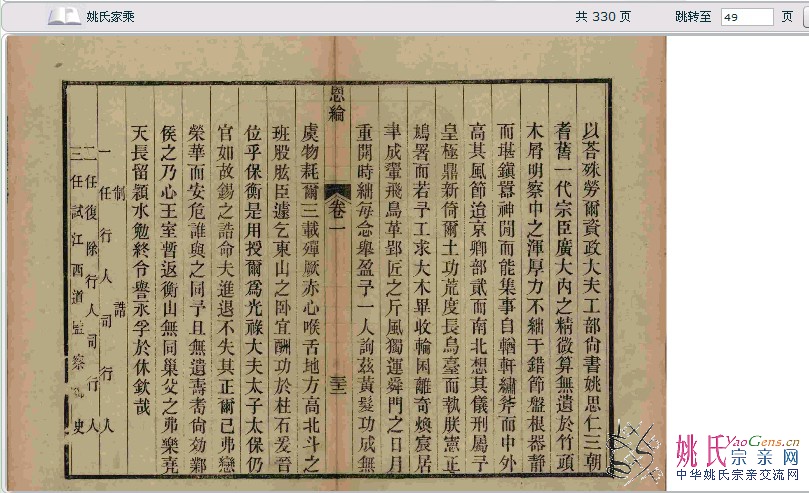 姚氏家乘
共 330 页
跳转至 49 页
以荅殊勞爾資政大夫工部尚書姚思仁三朝
耆舊一代宗臣廣大內之精微算無遺於竹頭
木屑明察中之渾厚力不絀于錯節盤根器靜
而堪鎮囂神閒而能集事自輶軒繡斧而中外
高其風節迨京卿部貳而南北想其儀刑屬予
皇極鼎新倚爾土功荒度長烏臺而執朕憲正
鳩署而若予工求大木畢收輪囷離奇煥宸居
聿成翬飛鳥革郢匠之斤風獨運舜門之日月
重開時絀每念舉盈予一人詢茲黃髮功成無
恩綸
卷一
三十三
虞物耗爾三載殫厥赤心喉舌地方高北斗之
班股肱臣遽乞東山之卧宜酬功於柱石爰晉
位乎保衡是用授爾爲光祿大夫太子太保仍
官如故錫之誥命夫進退不失其正爾已弗戀
榮華而安危誰與之同予且無遺壽耇尚効鄴
侯之乃心王室暫返衡山無同巢父之弗樂堯
天長留潁水勉終令譽永孚於休欽哉
制誥
一任行人司行人
二任復除行人司行人
三任試江西道監察 史
姚氏 YaoGens.cn
宗亲网
中华姚氏宗亲交流网